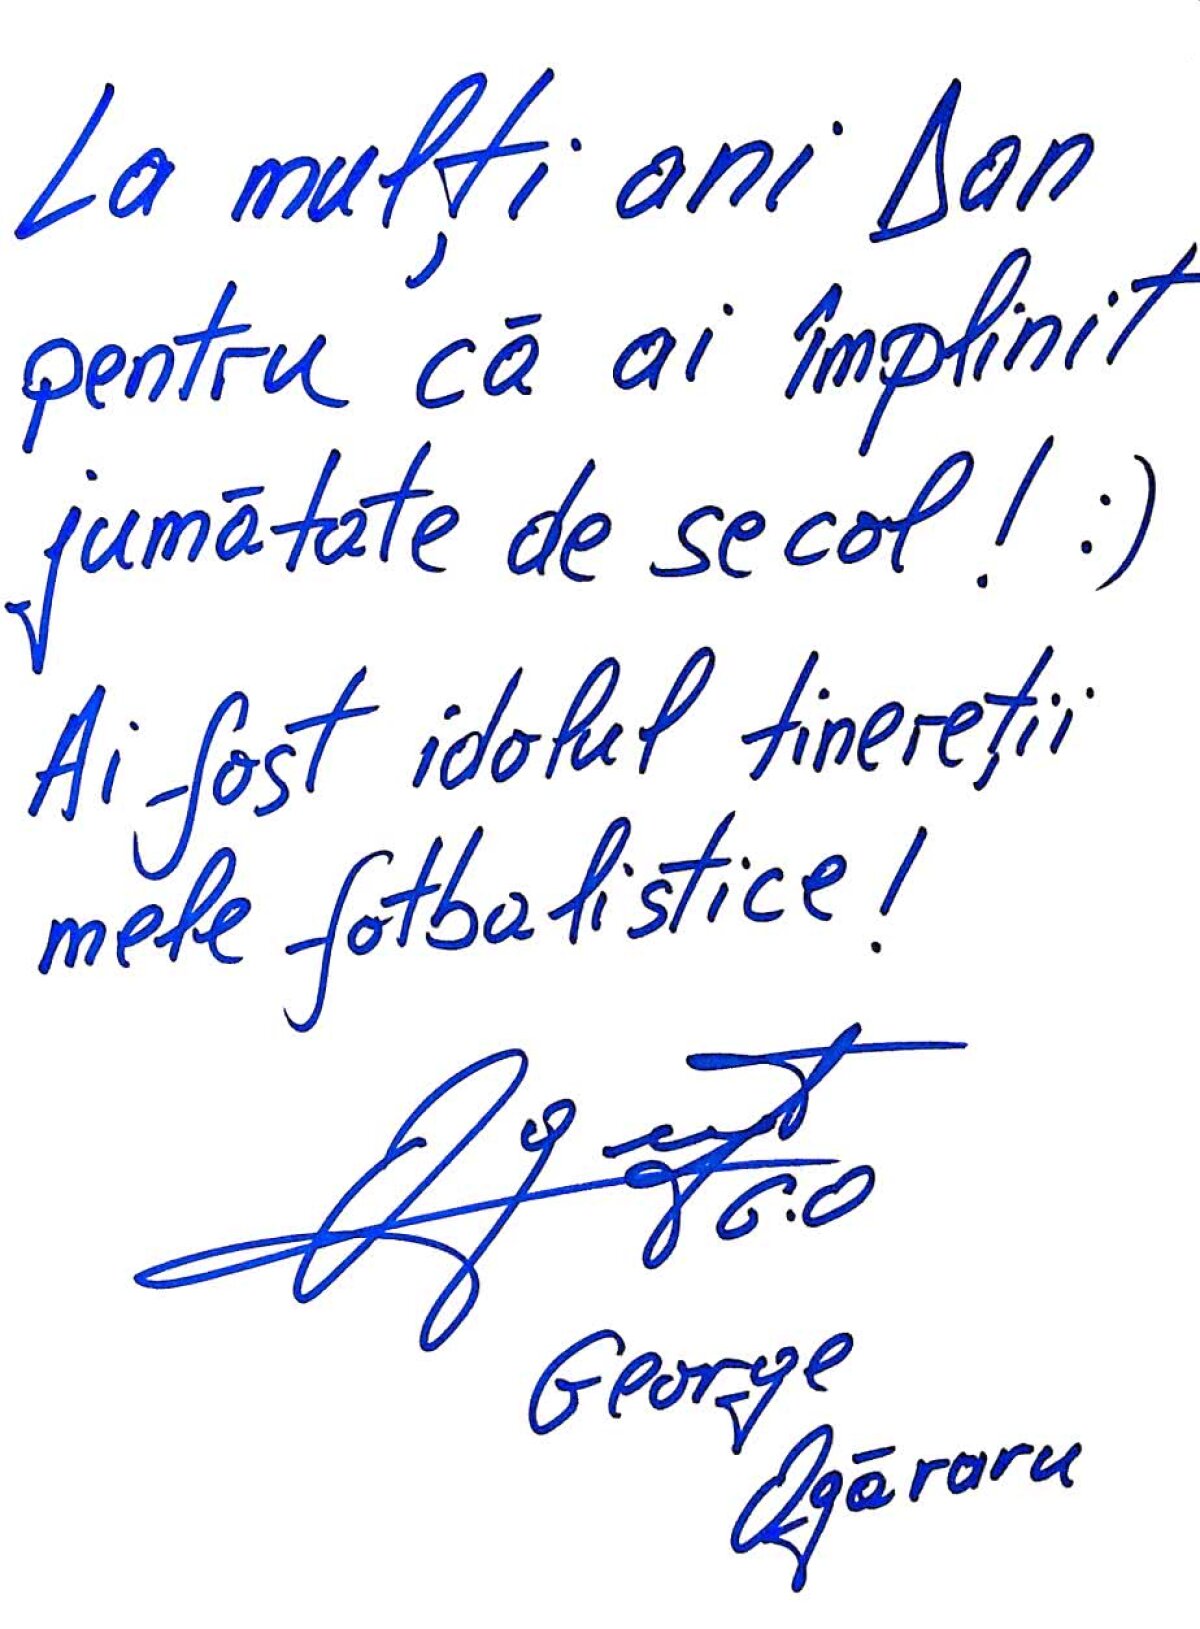 La mulți ani Dan
pentru că ai împlinit
jumătate de secol! :)
Ai fost idolul tinereții
mele fotbalistice!
G.O
George
Ogăraru